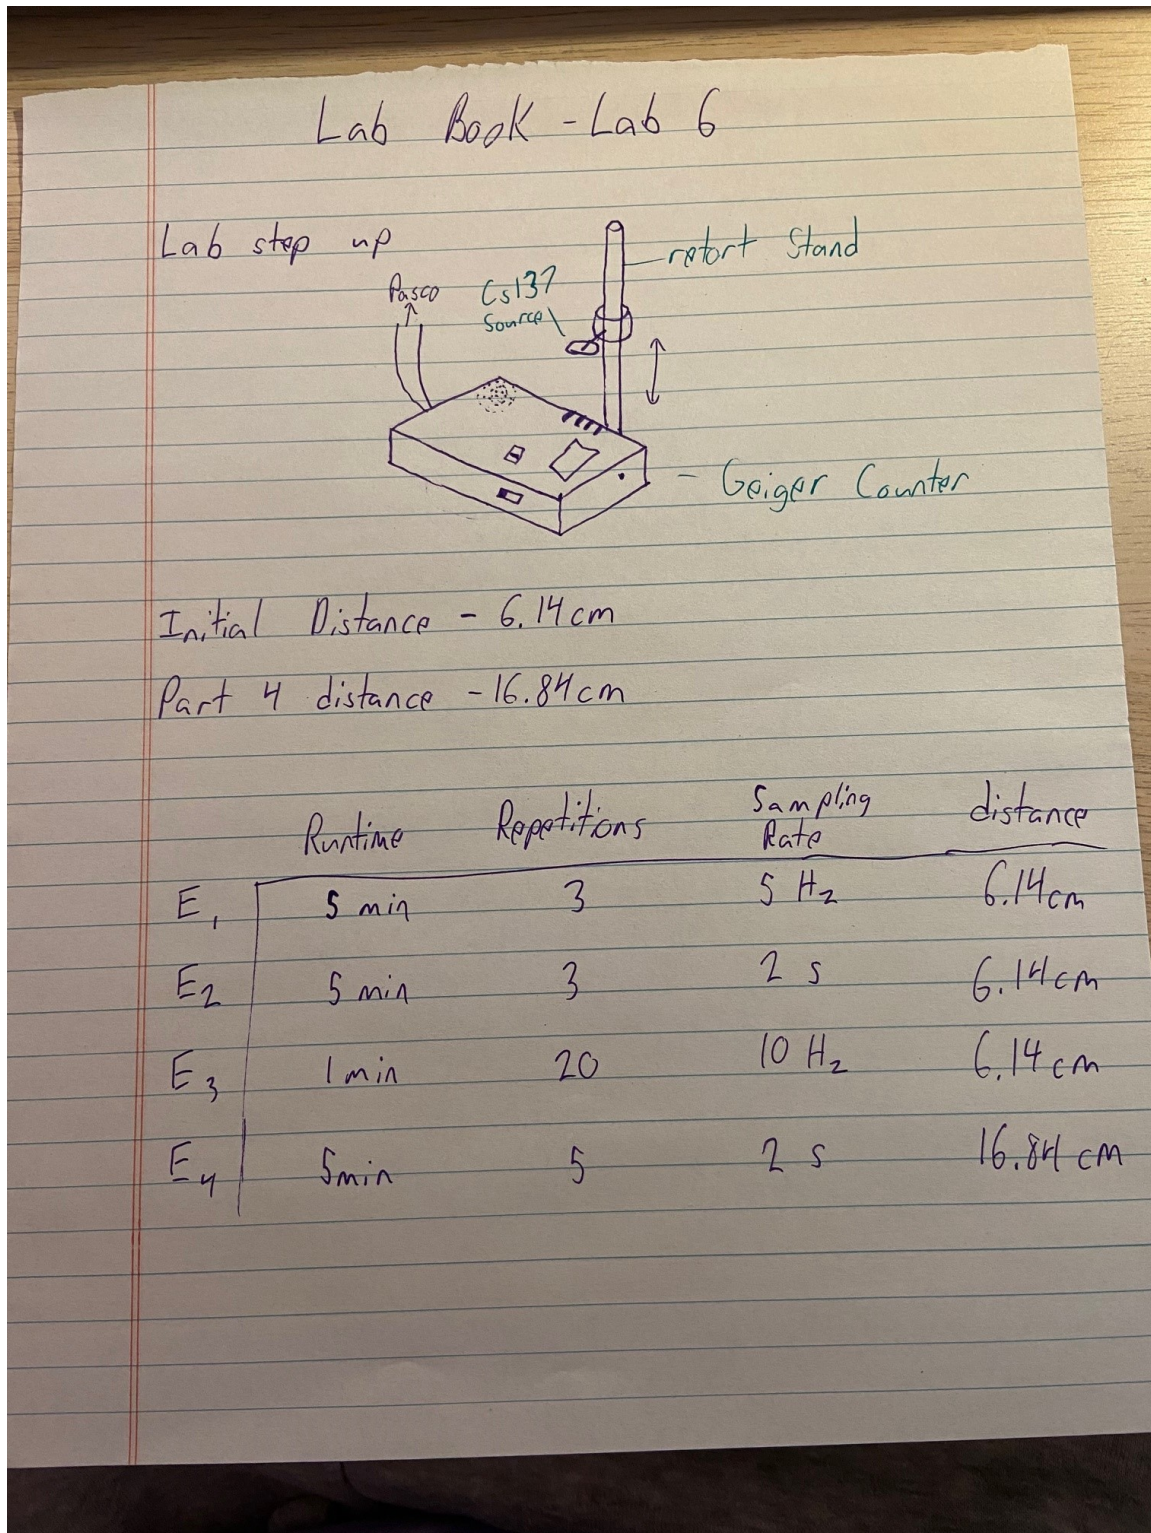 Lab Book - Lab 6
Lab step up
retort Stand
Pasco
Cs137
Source
- Geiger Counter
Initial Distance - 6.14cm
Part 4 distance - 16.84cm
Runtime Repetitions Sampling Rate distance
E1 5 min 3 5 Hz 6.14cm
E2 5 min 3 2 s 6.14cm
E3 1 min 20 10 Hz 6.14 cm
E4 5min 5 2 s 16.84 cm